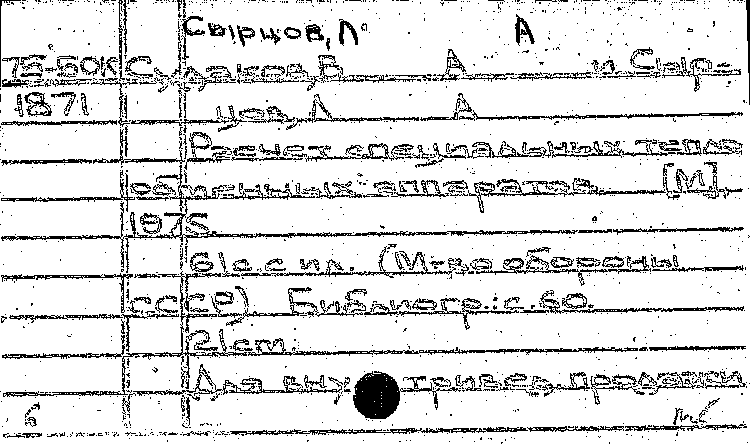 Сырцов, Л А
75-50К Судаков, Б А и Сыр-
1871 цов, Л А
Расчет специальных тепло
обменных аппаратов [М],
1975.
61с. с ил. (М-во обороны
СССР) Библиогр.: с. 60.
21 cm.
Для вну тривед. продажи
6